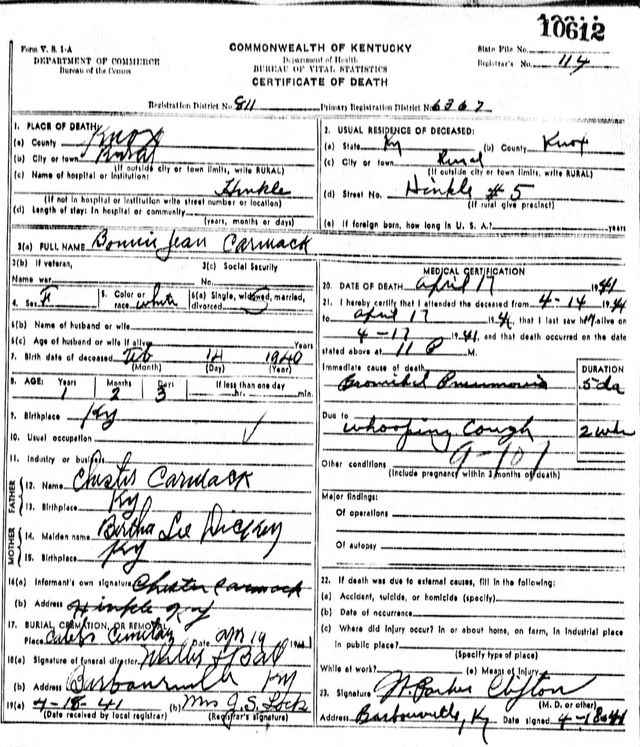 10612
Form V. S. 1-A
DEPARTMENT OF COMMERCE
Bureau of the Census
COMMONWEALTH OF KENTUCKY
Department of Health
BUREAU OF VITAL STATISTICS
CERTIFICATE OF DEATH
State File No.
Registrar's No. 114
Registration District No. 811 Primary Registration District No. 6367
1. PLACE OF DEATH:
(a) County Knox
(b) City or town Rural
(If outside city or town limits, write RURAL)
(c) Name of hospital or institution:
Hinkle
(If not in hospital or institution write street number or location)
(d) Length of stay: In hospital or community
(years, months or days)
2. USUAL RESIDENCE OF DECEASED:
(a) State Ky (b) County Knox
(c) City or town Rural
(If outside city or town limits, write RURAL)
(d) Street No. Hinkle # 5
(If rural give precinct)
(e) If foreign born, how long in U. S. A.? years
3(a) FULL NAME Bonnie Jean Carmack
3(b) If veteran,
Name war
3(c) Social Security
No.
4. Sex F
5. Color or
race white
6(a) Single, widowed, married,
divorced
6(b) Name of husband or wife
6(c) Age of husband or wife if alive Years
7. Birth date of deceased Feb 14 1940
(Month) (Day) (Year)
8. AGE: Years Months Days If less than one day
1 2 3 hr. min.
9. Birthplace Ky
10. Usual occupation ✓
11. Industry or business
FATHER
12. Name Chester Carmack
13. Birthplace Ky
MOTHER
14. Maiden name Bertha Lee Dickey
15. Birthplace Ky
16(a) Informant's own signature Chester Carmack
(b) Address Hinkle Ky
17. BURIAL, CREMATION, OR REMOVAL
Place Cemetary Date Apr 19 1941
18(a) Signature of funeral director
(b) Address Barbourville Ky
19(a) 4-18-41 (b) Mrs J. S. Lock
(Date received by local registrar) (Registrar's signature)
MEDICAL CERTIFICATION
20. DATE OF DEATH April 17 1941
21. I hereby certify that I attended the deceased from 4-14 1941
to April 17 1941, that I last saw h alive on
4-17 1941, and that death occurred on the date
stated above at 11 P M.
Immediate cause of death DURATION
Bronichel Pneumonia 5 da
Due to
Whooping Cough 2 wks
9-101
Other conditions
(Include pregnancy within 3 months of death)
Major findings:
Of operations
Of autopsy
22. If death was due to external causes, fill in the following:
(a) Accident, suicide, or homicide (specify)
(b) Date of occurrence
(c) Where did injury occur? In or about home, on farm, in industrial place
in public place?
(Specify type of place)
While at work? (e) Means of Injury
23. Signature W. Parker Clifton
(M. D. or other)
Address Barbourville, Ky Date signed 4-18-41